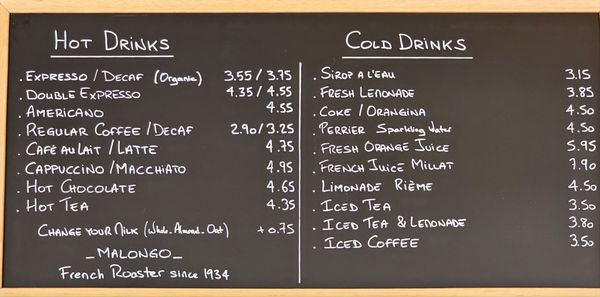 HOT DRINKS
. EXPRESSO / DECAF (Organic) 3.55 / 3.75
. DOUBLE EXPRESSO 4.35 / 4.55
. AMERICANO 4.55
. REGULAR COFFEE / DECAF 2.90 / 3.25
. CAFÉ AU LAIT / LATTE 4.75
. CAPPUCCINO / MACCHIATO 4.95
. HOT CHOCOLATE 4.65
. HOT TEA 4.35
CHANGE YOUR MILK (Whole_Almond_Oat) +0.75
_ MALONGO _
French Roaster since 1934
COLD DRINKS
. SIROP A L'EAU 3.15
. FRESH LEMONADE 3.85
. COKE / ORANGINA 4.50
. PERRIER Sparkling Water 4.50
. FRESH ORANGE JUICE 5.95
. FRENCH JUICE MILLAT 7.90
. LIMONADE RIÈME 4.50
. ICED TEA 3.50
. ICED TEA & LEMONADE 3.80
. ICED COFFEE 3.50